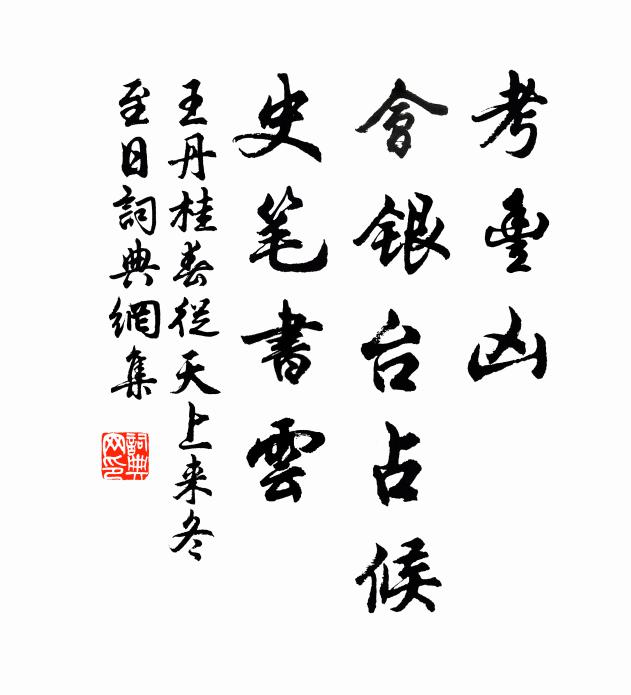 考豐凶
會銀台占候
史笔書雲
王丹桂春從天上来冬
至日詞典網集
詞典
网印